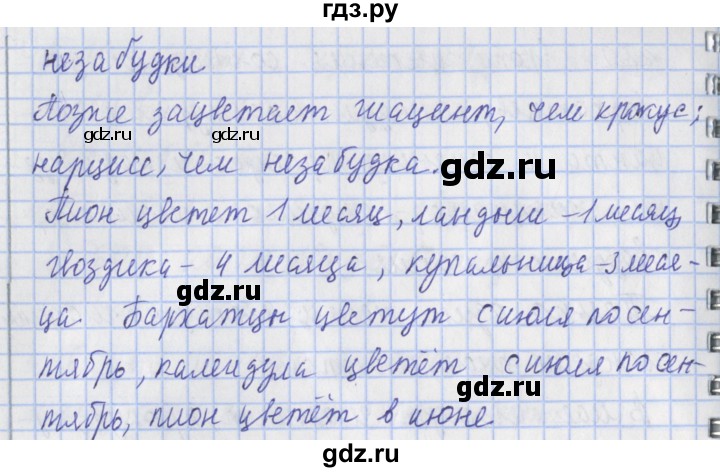 гдз.ру
незабудки
Позже зацветает гиацинт, чем крокус;
gdz.ru
gdz.ru
нарцисс, чем незабудка.
gdz.ru
Пион цветет 1 месяц, ландыш - 1 месяц,
gdz.ru
gdz.ru
гвоздика - 4 месяца, купальница - 3 меся-
gdz.ru
ца. Бархатцы цветут с июля по сен-
gdz.ru
тябрь, календула цветёт с июля по сен-
gdz.ru
тябрь, пион цветёт в июне
gdz.ru
gdz.ru